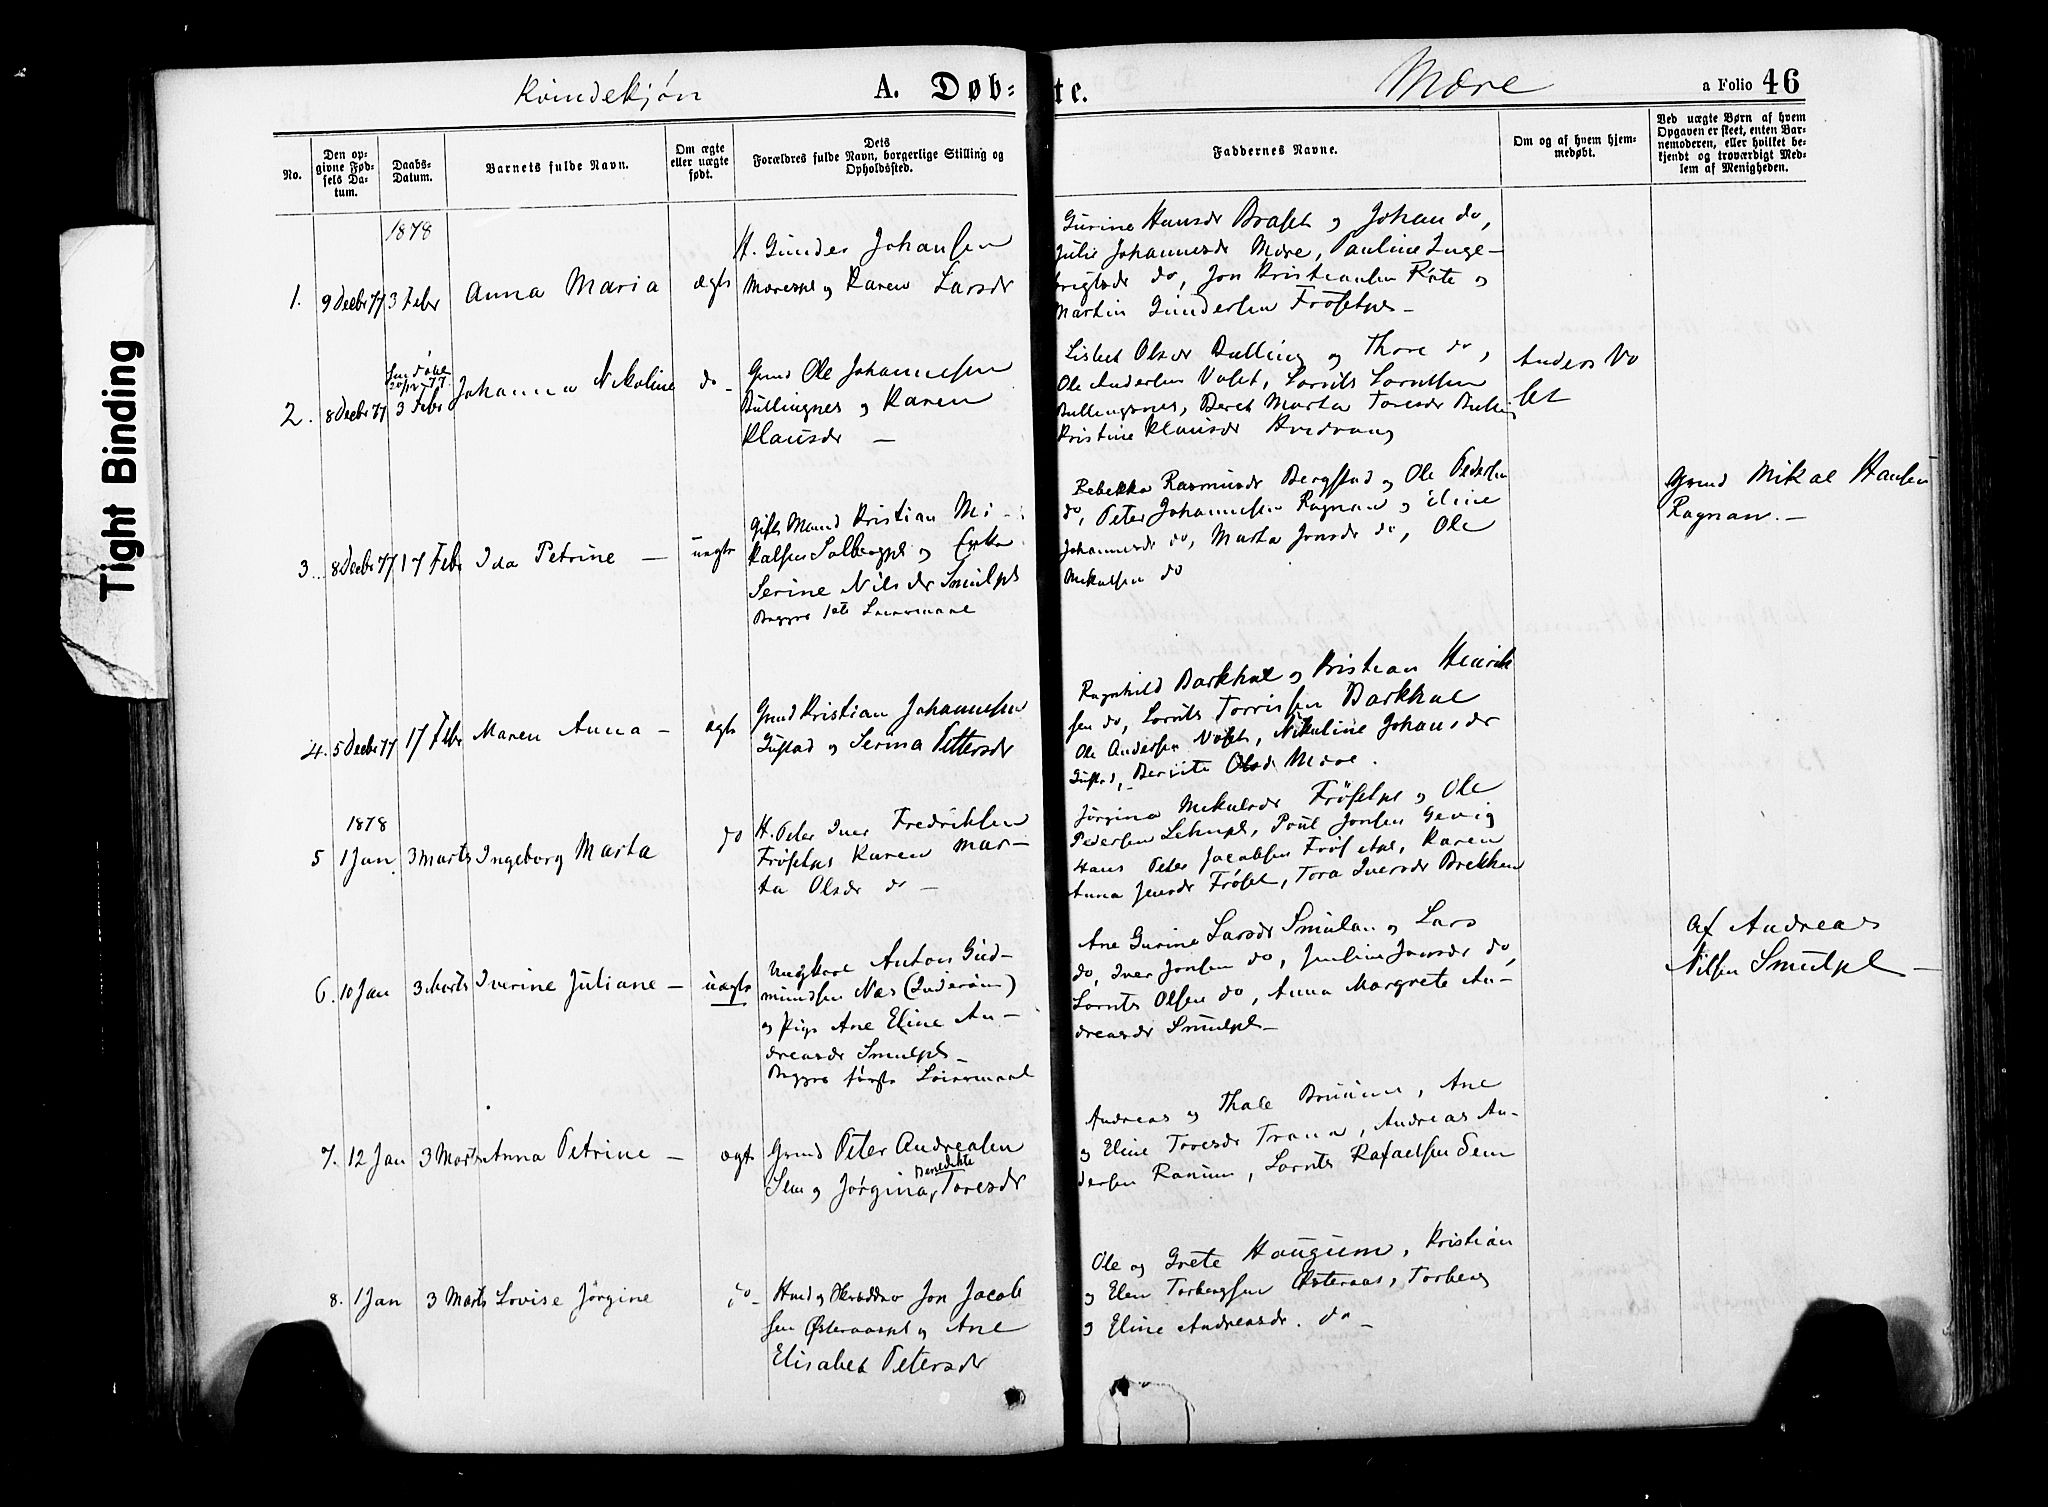 Tight Binding
Kvindekjøn
A. Døb=
te.
Mære
a Folio 46
No.
Den op-
givne Fød-
sels Da-
tum.
Daabs-
Datum.
Barnets fulde Navn.
Om ægte
eller uægte
født.
Dets
Forældres fulde Navn, borgerlige Stilling og
Opholdssted.
Faddernes Navne.
Om og af hvem hjem-
medøbt.
Ved uægte Børn af hvem
Opgaven er skeet, enten Bar-
nemoderen, eller hvilket be-
kjendt og troværdigt Med-
lem af Menigheden.
1878
1. 9 Decbr 77 3 Febr Anna Maria ægte
H. Gunder Johansen
Morespl og Karen Larsdr
Gurine Hansdr Braset og Johan do,
Julie Johannesdr Mære, Pauline Inge-
brigtsdr do, Jon Kristiansen og
Martin Gundersen Frösetpl -
2. 8 Decbr 77 3 Febr Johanna Nikoline do -
Gmd Ole Johannesen
Bullingnes og Karen
Klausdr -
Lisbet Olsdr Bulling og Thore do,
Ole Andersen Voset, Lornts Lorntsen
Bullingsnes, Beret Marta Toresdr
Kristine Klausdr
Anders Vo
set
3. 8 Decbr 77 17 Febr Ida Petrine - uægte
Gift Mand Kristian Mi-
kalsen Solbergpl og Enke
Serine Nilsdr Smulpl
Begges 1ste Leiermaal
Rebekka Rasmusdr Bergstad og Ole Pedersen
do, Peter Johannesen Ragnan og Eline
Johannesdr do, Marta Jonsdr do, Ole
Mikalsen do
Gmd Mikal Hansen
Ragnan. -
4. 5 Decbr 77 17 Febr Maren Anna - ægte
Gmd Kristian Johannesen
Gustad og Serina Pettersdr
Ragnhild Barkhal og Kristian Henrik
sen do, Lornts Torrissen Barkhal
Ole Andersen Voset, Nikoline Johansdr
Gustad, Berite Olsdr Mære.
1878
5 1 Jan 3 Marts Ingeborg Marta do
H. Peter Iver Fredriksen
Fröset pl Karen Mar-
ta Olsdr do -
Jörgina Mikalsdr Frösetpl og Ole
Pedersen, Poul Jonsen Gevig
Hans Peter Jacobsen Fröset pl, Karen
Anna Jensdr Fröset, Tora Iversdr Brekken
6. 10 Jan 3 Marts Iverine Juliane - uægte
Ungkarl Anton Gud-
mundsen Næs (Inderøen)
og Pige Ane Eline An-
dreasdr Smulpl -
Begges første Leiermaal
Ane Gurine Larsdr Smulan og Lars
do, Iver Jonsen do, Jonsdr do,
Lornts Olsen do, Anna Margrete An-
dreasdr Smulpl -
Af Andreas
Nilsen Smulpl -
7. 12 Jan 3 Marts Anna Petrine - ægte
Gmd Peter Andreasen
Sem og Jørgina Benedikte Toresdr
Andreas og Thale, Ane
og Eline Toresdr Trana, Andreas An-
dersen Ranum, Lornts Rafaelsen Sem
8. 1 Jan 3 Marts Lovise Jörgine do -
Hmd og Skrædder Jon Jacob
sen Østeraaspl og Ane
Elisabet Petersdr
Ole og Grete Haugum, Kristian
og Elen Torbergsen Østeraas, Torberg
og Eline Andreasdr. do -